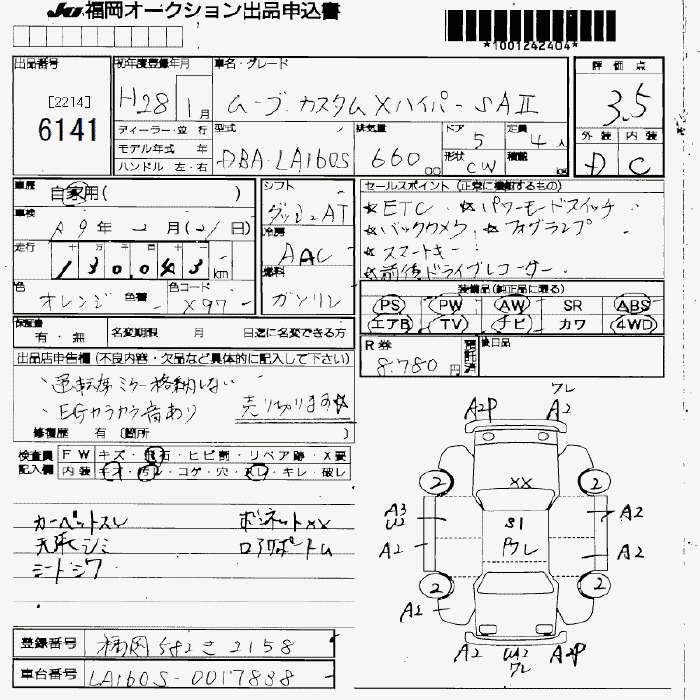 JU 福岡オークション出品申込書
*1001242404*
出品番号 初年度登録年月 車名・グレード 評価点
[2214]
6141
H28 1月 ムーブ カスタム Xハイパー SAⅡ 3.5
ディーラー・並行 型式 排気量 ドア 5 定員 4人 外装 内装
モデル年式 年 DBA-LA160S 660 cc 形状 CW 積載 kg D C
ハンドル 左・右
車歴 自家用( ) シフト セールスポイント (正常に機能するもの)
車検 R9年 2月(21日) ダッシュAT ☆ETC ☆パワーモードスイッチ
走行 冷房 ☆バックカメラ ☆フォグランプ
130,043 km AAC ☆スマートキー
色 色替 色コード 燃料 ☆前後ドライブレコーダー
オレンジ X97 ガソリン 装備品(純正品に限る)
PS PW AW SR ABS
エアB TV ナビ カワ 4WD
保証書 有・無 名変期限 月 日迄に名変できる方
R券 8,780円 預託済 後日品
出品店申告欄 (不良内容・欠品など具体的に記入して下さい)
運転席ミラー格納しない
EGカラカラ音あり 売り切ります☆
修復歴 有 (箇所
検査員 FW キズ・飛石・ヒビ割・リペア跡・X要
記入欄 内装 キオ・汚レ・コゲ・穴・スレ・キレ・破レ
カーペットスレ ボンネットXX
天張シミ ロアサポートム
シートシワ
ワレ
A2P A2
2 XX 2
A3
U2 S1 A2
A2 ワレ A2
2 2
A2
A2 UA2 A2P
ワレ
登録番号 福岡 582 さ 2158
車台番号 LA160S-0017888